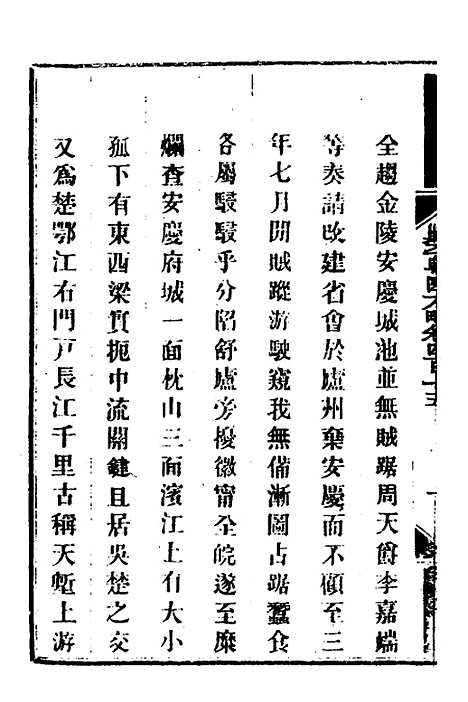 全趨金陵安慶城池並無賊踞周天爵李嘉端
等奏請改建省會於廬州棄安慶而不顧至三
年七月間賊蹤游駛窺我無備漸圖占踞蠶食
各屬駸駸乎分陷舒廬旁擾徽甯全皖遂至糜
爛查安慶府城一面枕山三面濱江上有大小
孤下有東西梁實扼中流關鍵且居吳楚之交
又為楚鄂江右門戸長江千里古稱天塹上游